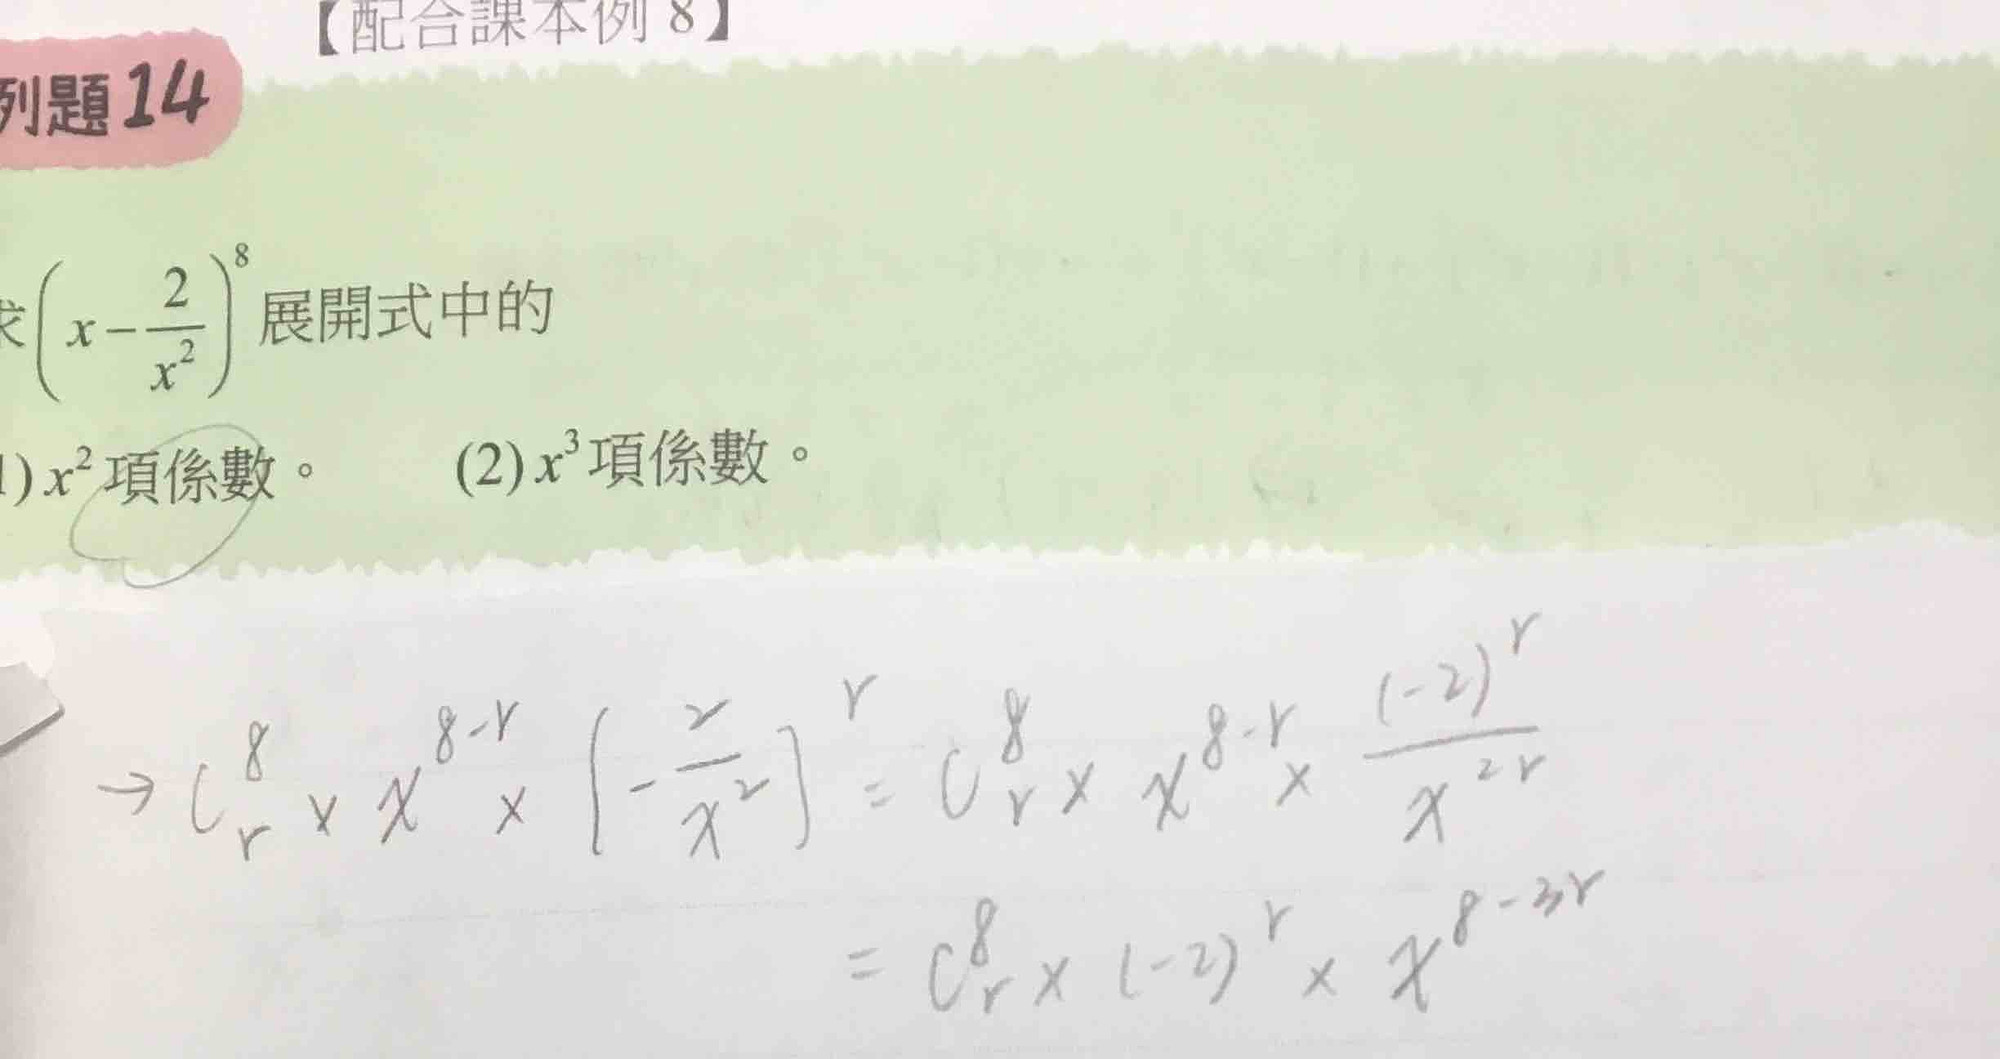 【配合課本例 8】
列題14
求(x-2/x²)⁸展開式中的
1) x²項係數。 (2) x³項係數。
→ C⁸ᵣ × x⁸⁻ʳ × [-2/x²]ʳ = C⁸ᵣ × x⁸⁻ʳ × (-2)ʳ/x²ʳ
= C⁸ᵣ × (-2)ʳ × x⁸⁻³ʳ